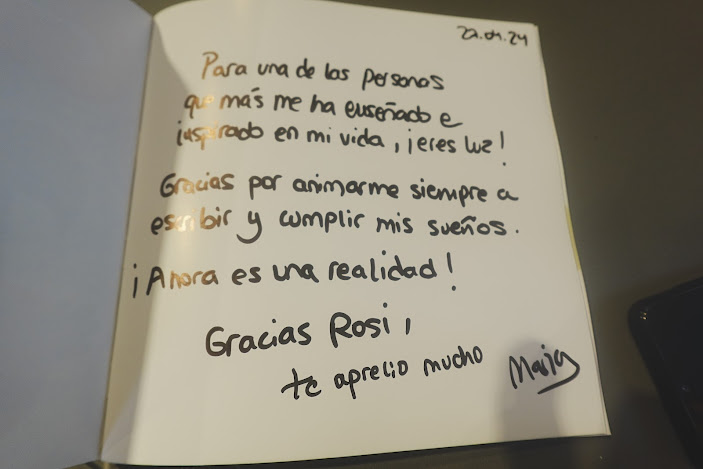 22.04.24
Para una de las personas
que más me ha enseñado e
inspirado en mi vida, ¡eres luz!
Gracias por animarme siempre a
escribir y cumplir mis sueños.
¡Ahora es una realidad!
Gracias Rosi,
te aprecio mucho